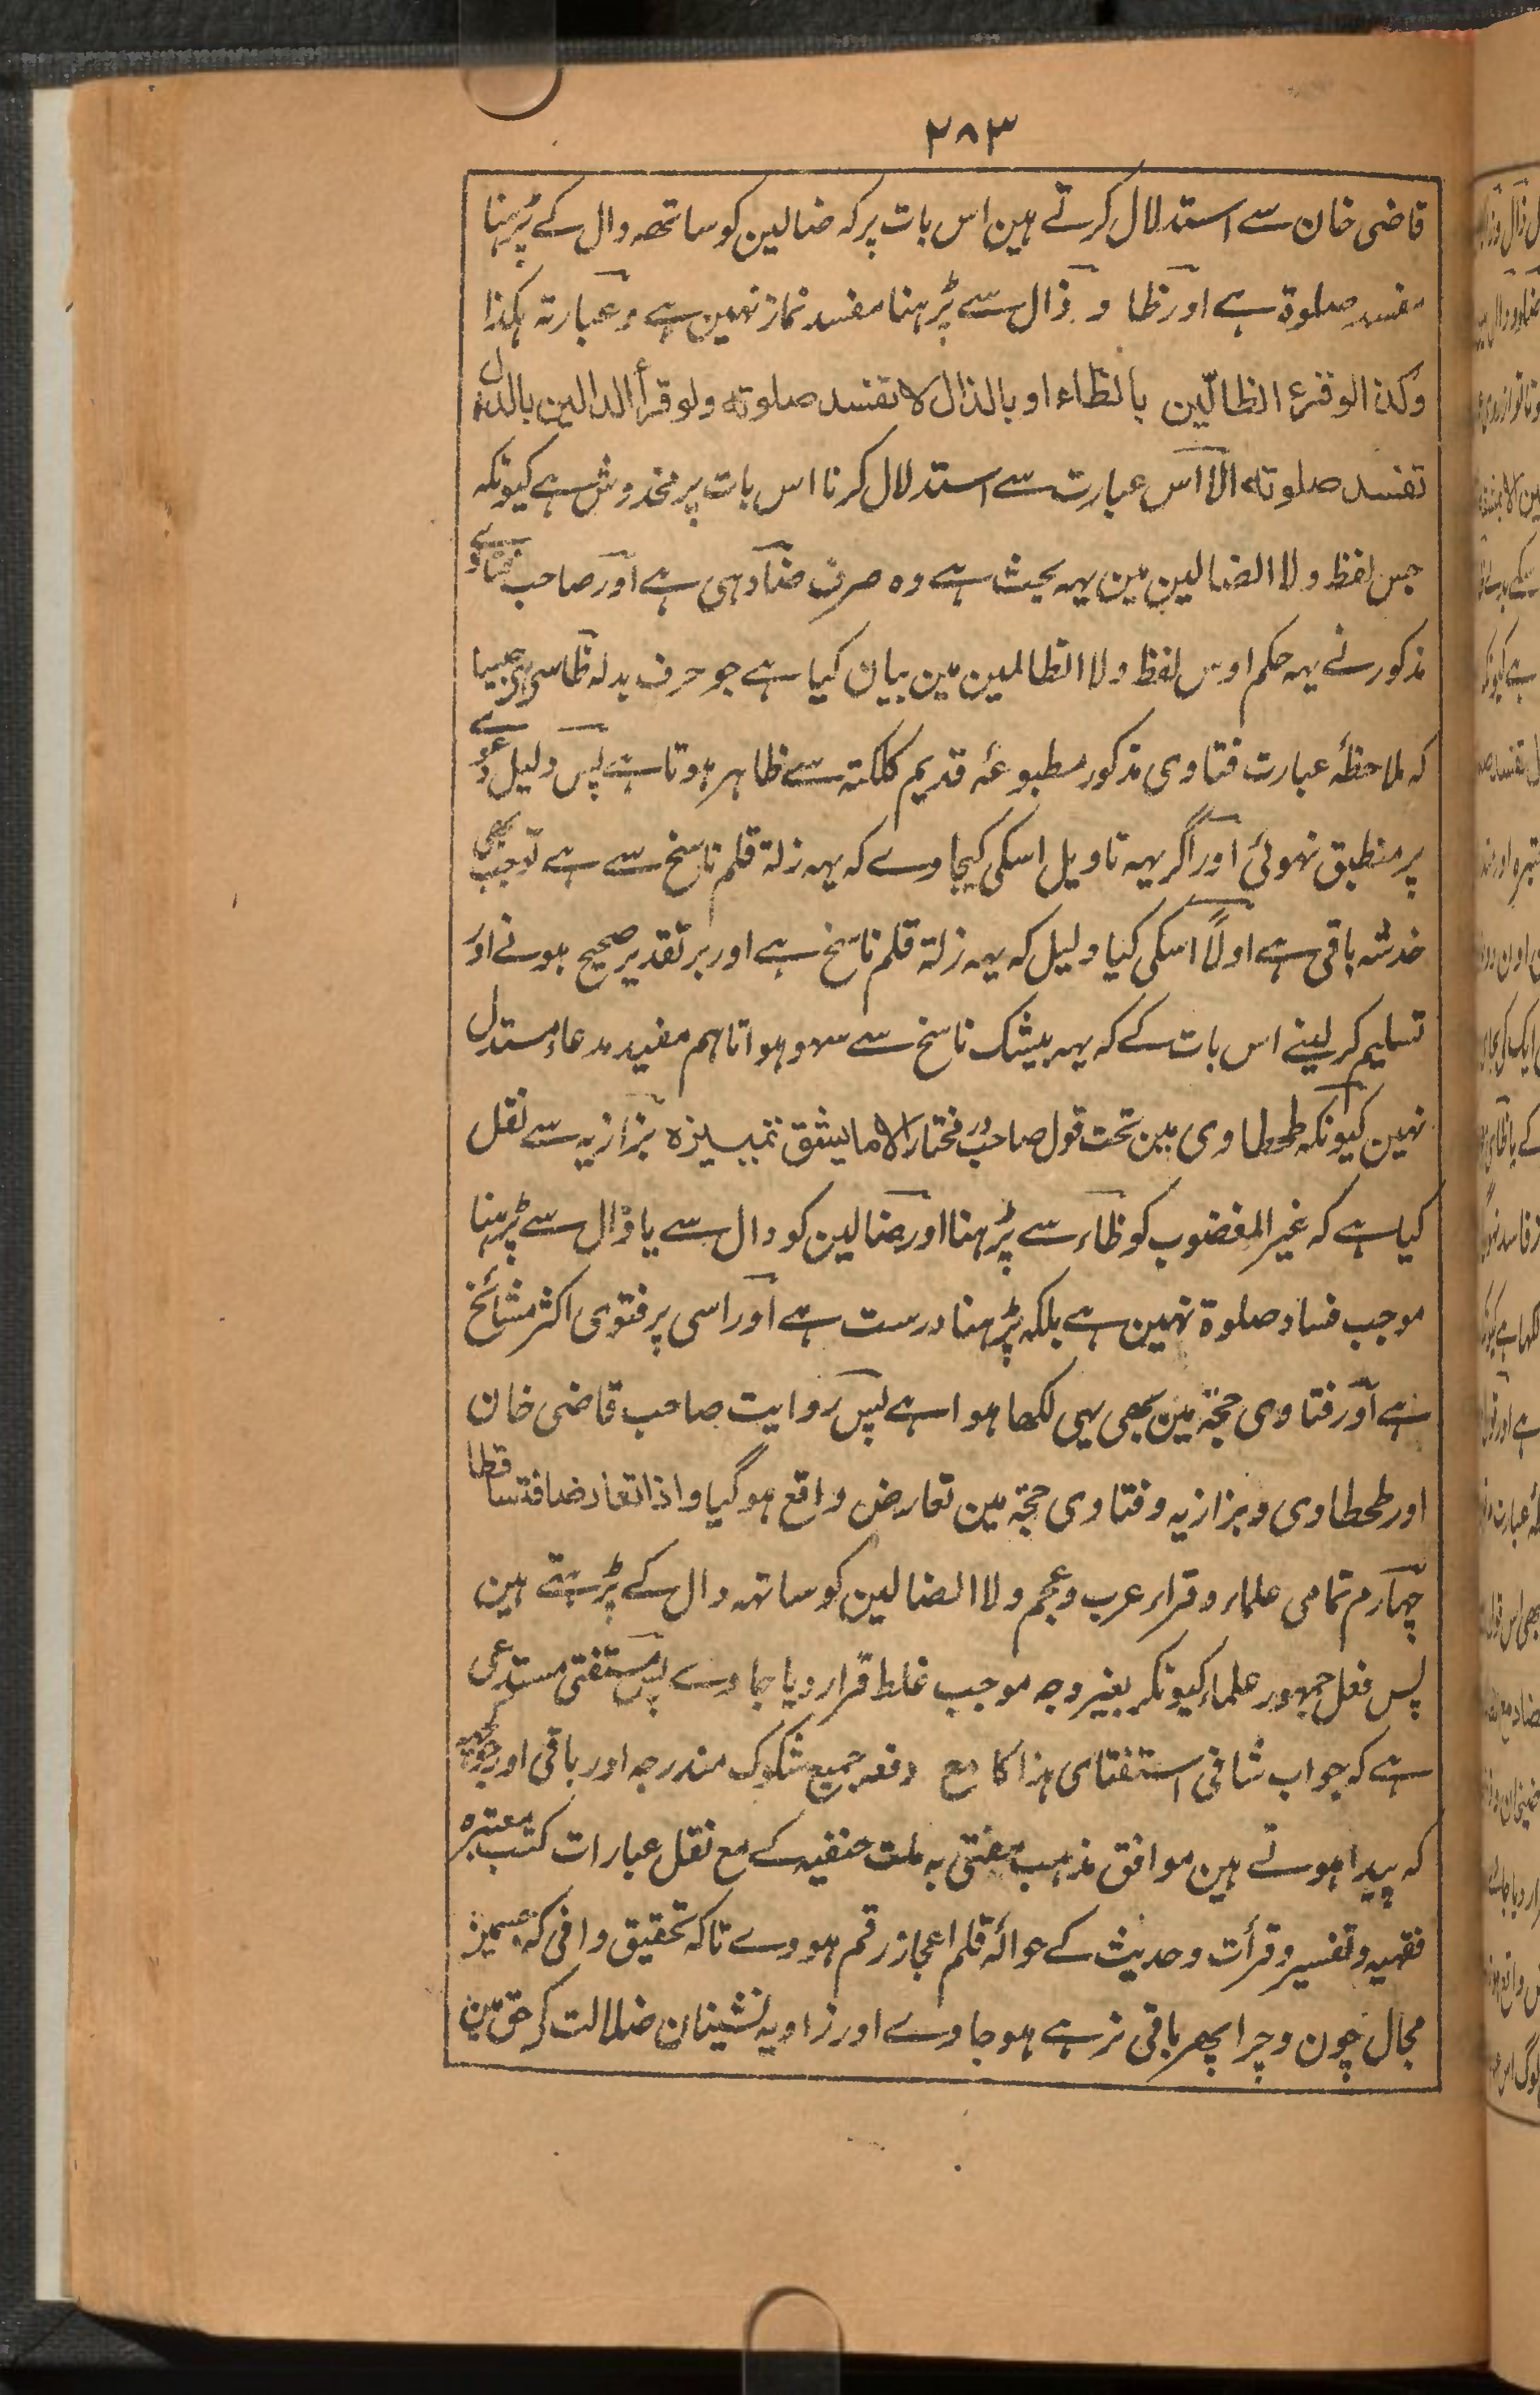 ۲۸۳
قاضی خان سے استدلال کرتے ہین اس بات پر کہ ضالین کو ساتھہ دال کے پڑہنا
مفسد صلوۃ ہے اور ظا و ذال سے پڑہنا مفسد نماز نہین ہے وعبارتہ ہکذا
وکذا لوقرئ الظالّین بالظاء او بالذال لا تفسد صلوتہ ولو قرأ الدالین بالدال
تفسد صلوتہ الا اس عبارت سے استدلال کرنا اس بات پر مخدوش ہے کیونکہ
جس لفظ ولا الضالین مین یہہ بحث ہے وہ صرف ضاد ہی ہے اور صاحب فتاوے
مذکور نے یہہ حکم اوس لفظ ولا الظالمین مین بیان کیا ہے جو حرف بدلہ ظا سے ہی جیسا
کہ ملاحظۂ عبارت فتاوی مذکور مطبوعۂ قدیم کلکتہ سے ظاہر ہوتا ہے پس دلیل دعوے
پر منطبق نہوئی اور اگر یہہ تاویل اسکی کیجاوے کہ یہہ زلۃ قلم ناسخ سے ہے تو جب بھی
خدشہ باقی ہے اولاً اسکی کیا دلیل کہ یہہ زلۃ قلم ناسخ ہے اور بر تقدیر صحیح ہونے اور
تسلیم کر لینے اس بات کے کہ یہہ بیشک ناسخ سے سہو ہوا تاہم مفید مدعاء مستدل
نہین کیونکہ طحطاوی مین تحت قول صاحب در مختار الا ما یشق تمییزہ بزازیہ سے نقل
کیا ہے کہ غیر المغضوب کو ظاء سے پڑہنا اور ضالین کو دال سے یا ذال سے پڑہنا
موجب فساد صلوۃ نہین ہے بلکہ پڑہنا درست ہے اور اسی پر فتوی اکثر مشائخ
ہے اور فتاوی حجۃ مین بھی یہی لکھا ہوا ہے پس روایت صاحب قاضی خان
اور طحطاوی و بزازیہ و فتاوی حجۃ مین تعارض واقع ہو گیا واذا تعارضا فتساقطا
چہارم تمامی علماء و قراء عرب و عجم ولا الضالین کو ساتہہ دال کے پڑہتے ہین
پس فعل جمہور علماء کیونکر بغیر وجہ موجب غلط قرار دیا جاوے پس مستفتی مستدعی
ہے کہ جواب شافی استفتای ہذا کا مع دفعہ جمیع شکوک مندرجہ اور باقی اور جو کچھہ
کہ پیدا ہوتے ہین موافق مذہب مفتی بہ ملت حنفیہ کے مع نقل عبارات کتب معتبرہ
فقہیہ و تفسیر و قرأت و حدیث کے حوالۂ قلم اعجاز رقم ہووے تاکہ تحقیق وافی کہ جسمین
مجال چون و چرا پھر باقی نرہے ہو جاوے اور زاویہ نشینان ضلالت کے حق مین